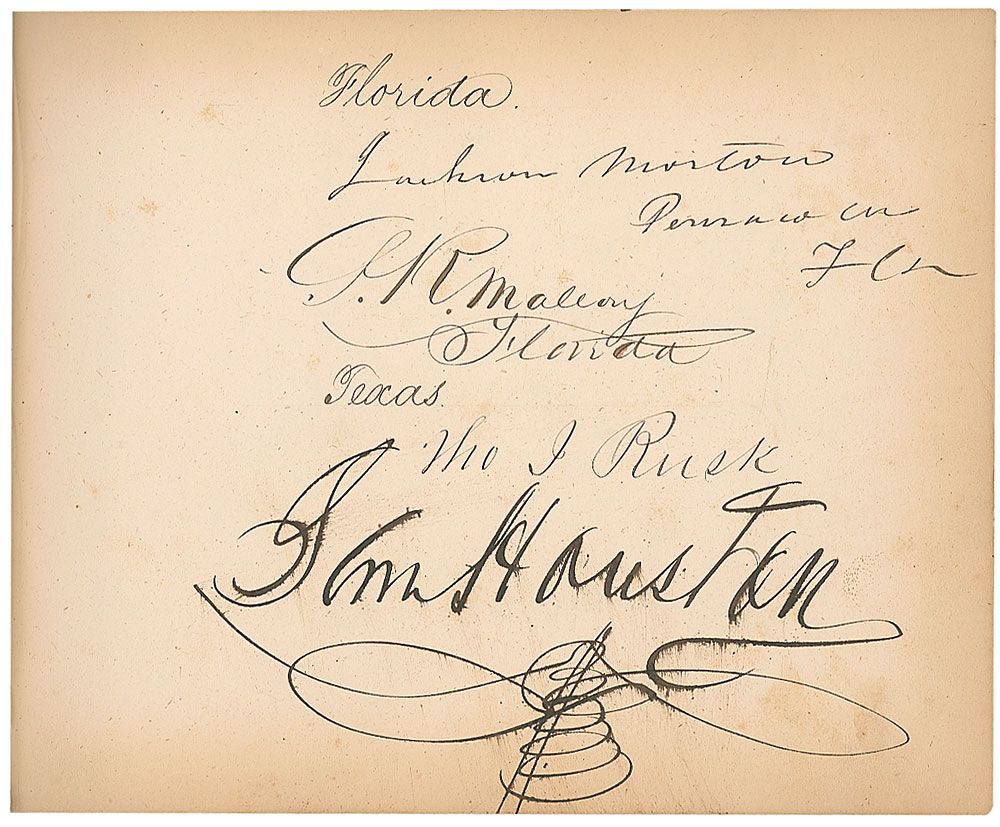 Florida.
Jackson Morton
Pensacola
Fla
S. R. Mallory
Florida
Texas.
Tho J Rusk
Sam Houston